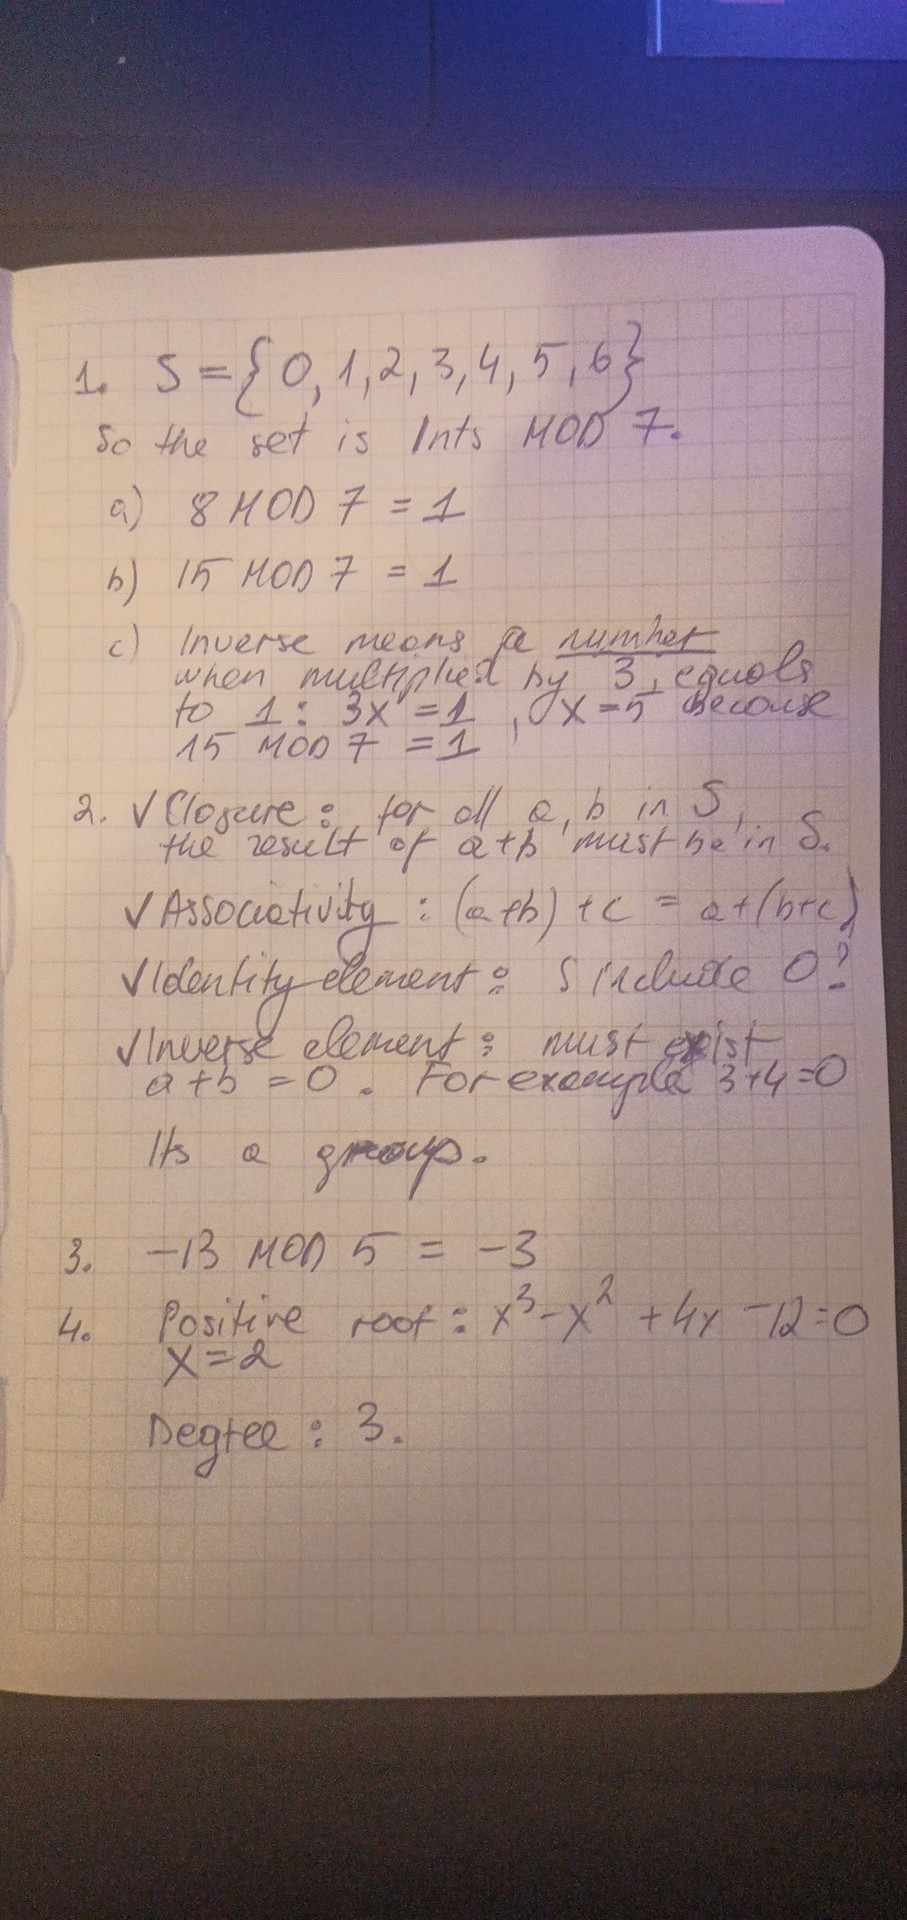 1. S = {0, 1, 2, 3, 4, 5, 6}
So the set is Ints MOD 7.
a) 8 MOD 7 = 1
b) 15 MOD 7 = 1
c) Inverse means a number
when multiplied by 3, equals
to 1 : 3x = 1, x = 5 because
15 MOD 7 = 1
2. √ Closure : for all a, b in S,
the result of a+b must be in S.
√ Associativity : (a+b) + c = a+(b+c)
√ Identity element : S include 0?
√ Inverse element : must exist
a + b = 0 . For example 3+4=0
Its a group.
3. -13 MOD 5 = -3
4. Positive root : x³ - x² + 4x - 12 = 0
x = 2
Degree : 3.